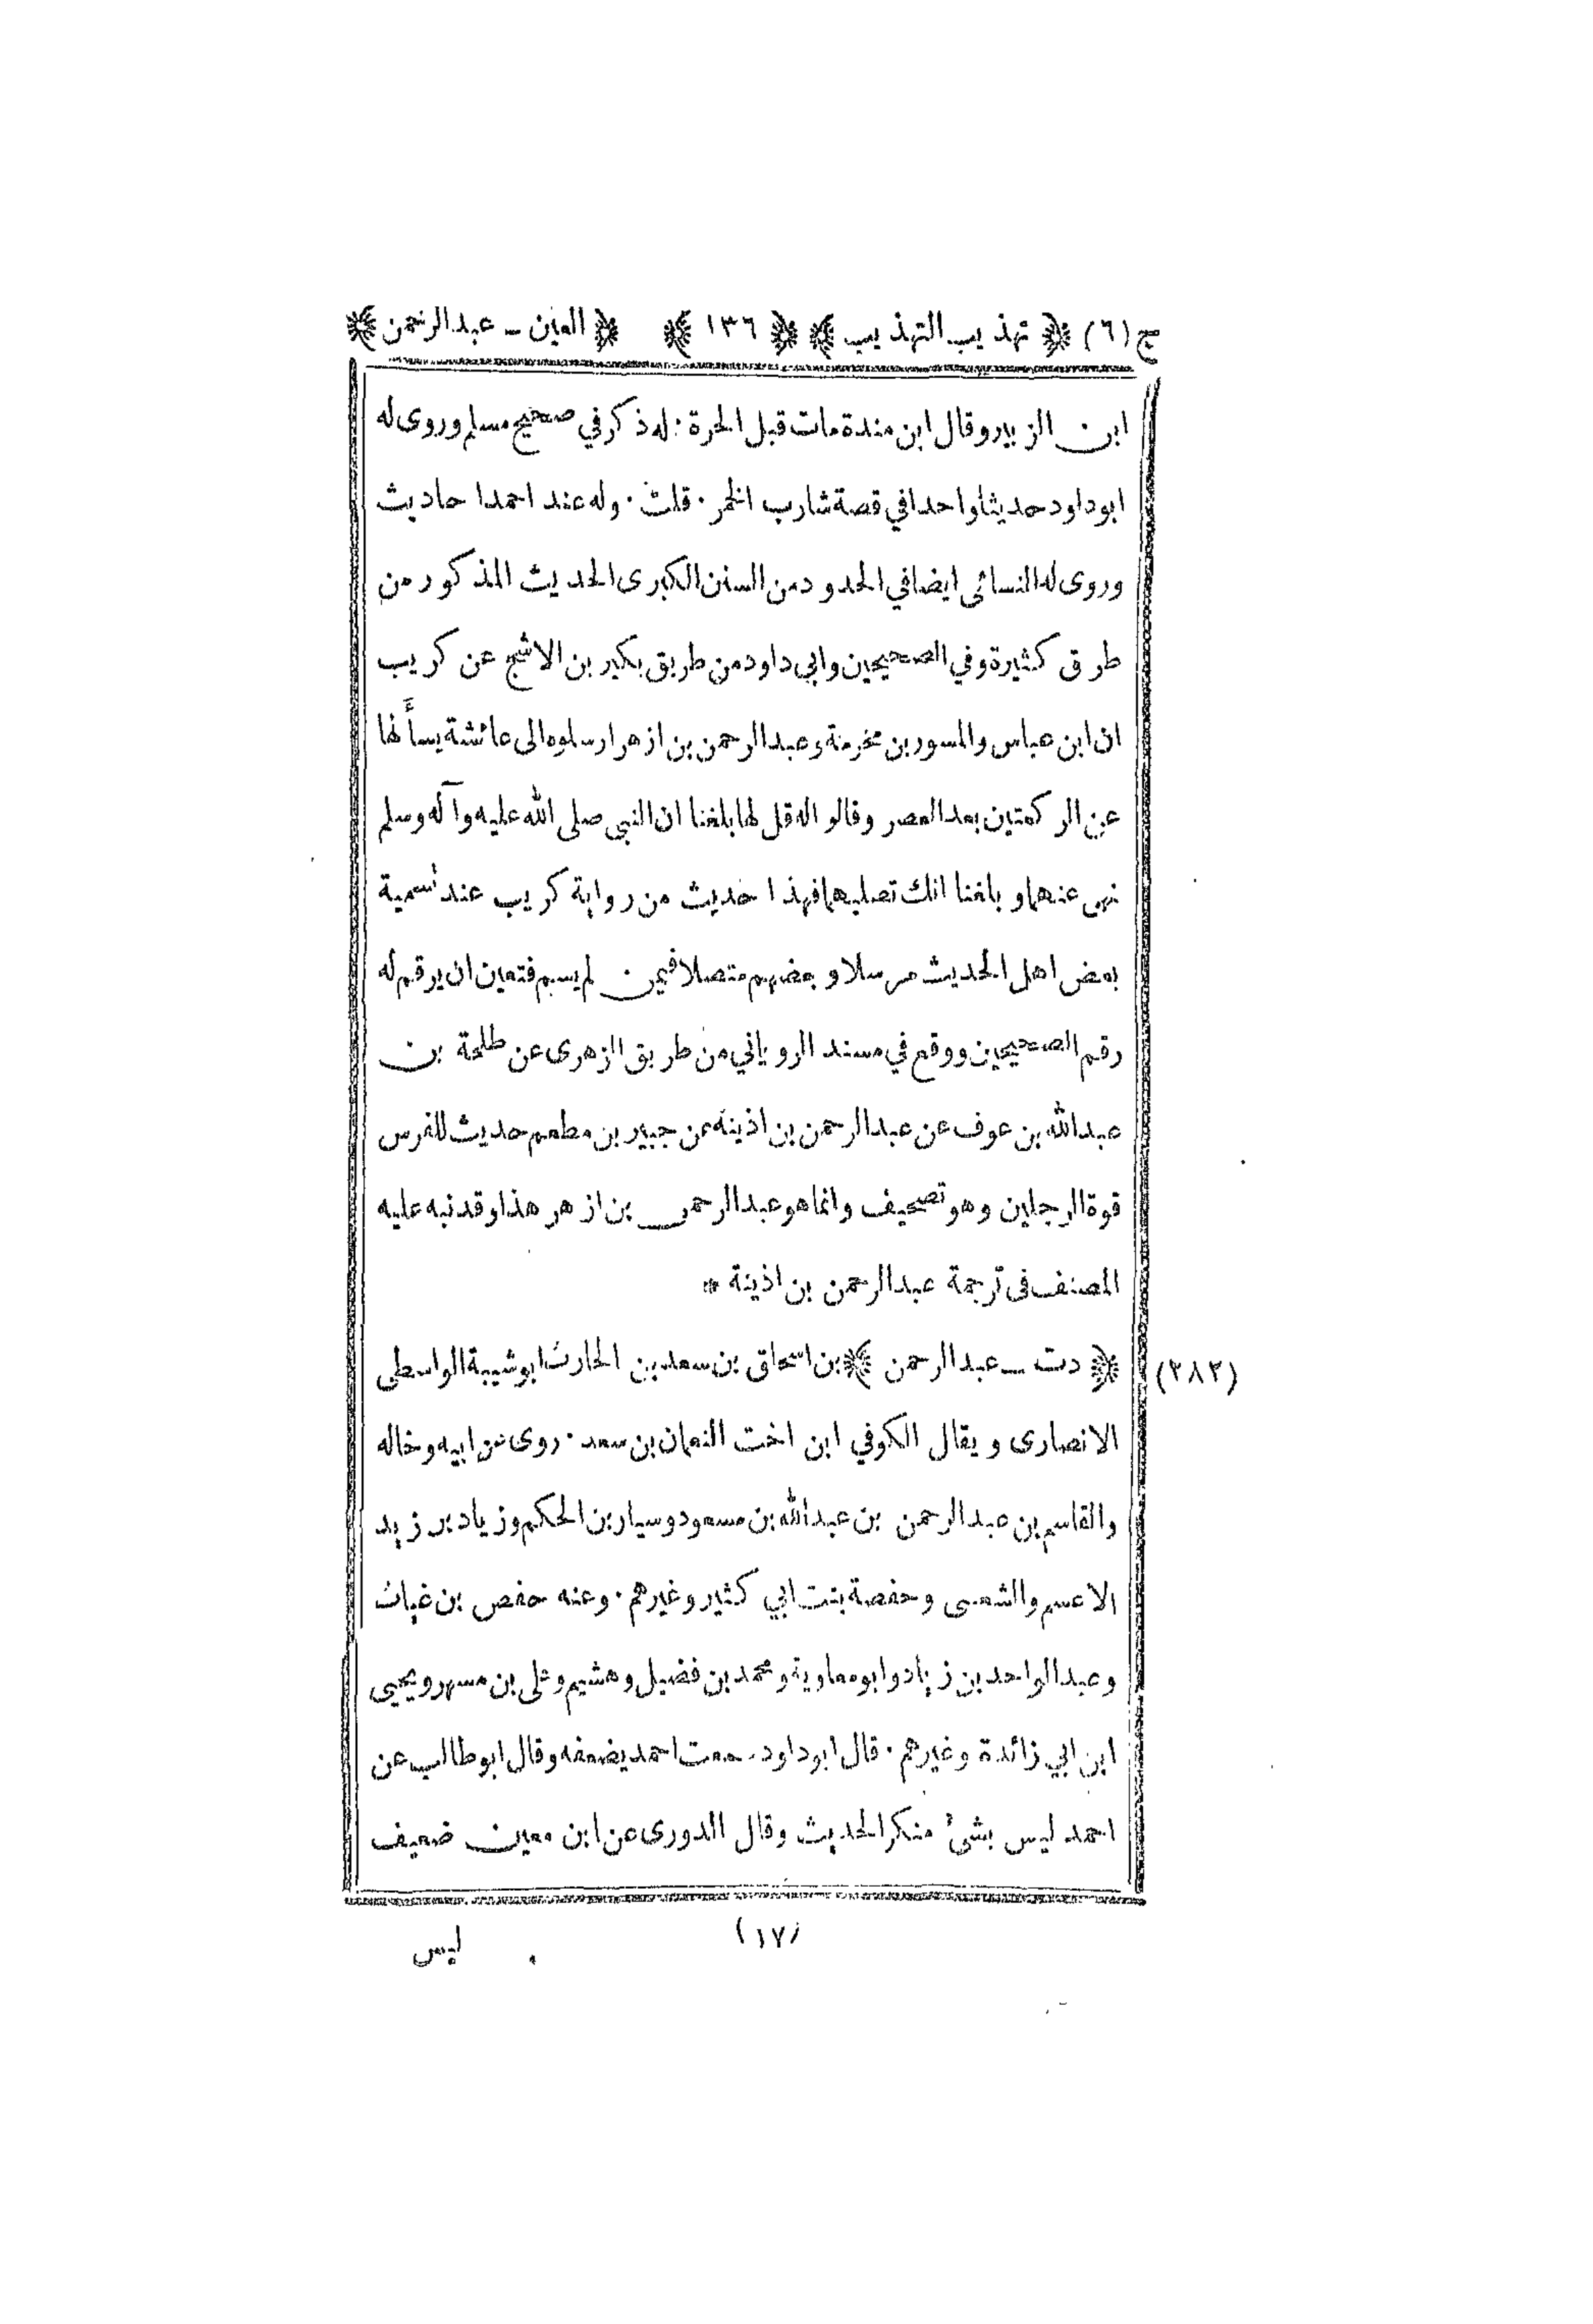 ج (٦) ﴿ تهذيب التهذيب ﴾ ﴿ ١٣٦ ﴾ ﴿ العين - عبد الرحمن ﴾
ابن الزبير وقال ابن مندة مات قبل الحرة : له ذكر في صحيح مسلم وروى له
ابو داود حديثا واحدا في قصة شارب الخمر · قلت · وله عند احمد احاديث
وروى له النسائى ايضا في الحدود من السنن الكبرى الحديث المذكور من
طرق كثيرة وفي الصحيحين وابي داود من طريق بكير بن الاشج عن كريب
ان ابن عباس والمسور بن مخرمة وعبد الرحمن بن ازهر ارسلوه الى عائشة يسألها
عن الركعتين بعد العصر وقالوا له قل لها بلغنا ان النبي صلى الله عليه وآله وسلم
نهى عنهما وبلغنا انك تصليهما فهذا حديث من رواية كريب عند تسمية
بعض اهل الحديث مرسلا وبعضهم متصلا فيمن لم يسم فتعين ان يرقم له
رقم الصحيحين ووقع في مسند الروياني من طريق الزهرى عن طلحة بن
عبد الله بن عوف عن عبد الرحمن بن اذينة عن جبير بن مطعم حديث للفرس
قوة الرجلين وهو تصحيف وانما هو عبد الرحمن بن ازهر هذا وقد نبه عليه
المصنف فى ترجمة عبد الرحمن بن اذينة *
(٢٨٢) ﴿ دت - عبد الرحمن ﴾ بن اسحاق بن سعد بن الحارث ابو شيبة الواسطى
الانصارى ويقال الكوفي ابن اخت النعمان بن سعد · روى عن ابيه وخاله
والقاسم بن عبد الرحمن بن عبد الله بن مسعود وسيار بن الحكم وزياد بن زيد
الاعسم والشعبى وحفصة بنت ابي كثير وغيرهم · وعنه حفص بن غياث
وعبد الواحد بن زياد وابو معاوية ومحمد بن فضيل وهشيم وعلى بن مسهر ويحيى
ابن ابي زائدة وغيرهم · قال ابو داود سمعت احمد يضعفه وقال ابو طالب عن
احمد ليس بشئ منكر الحديث وقال الدورى عن ابن معين ضعيف
(١٧)
ليس